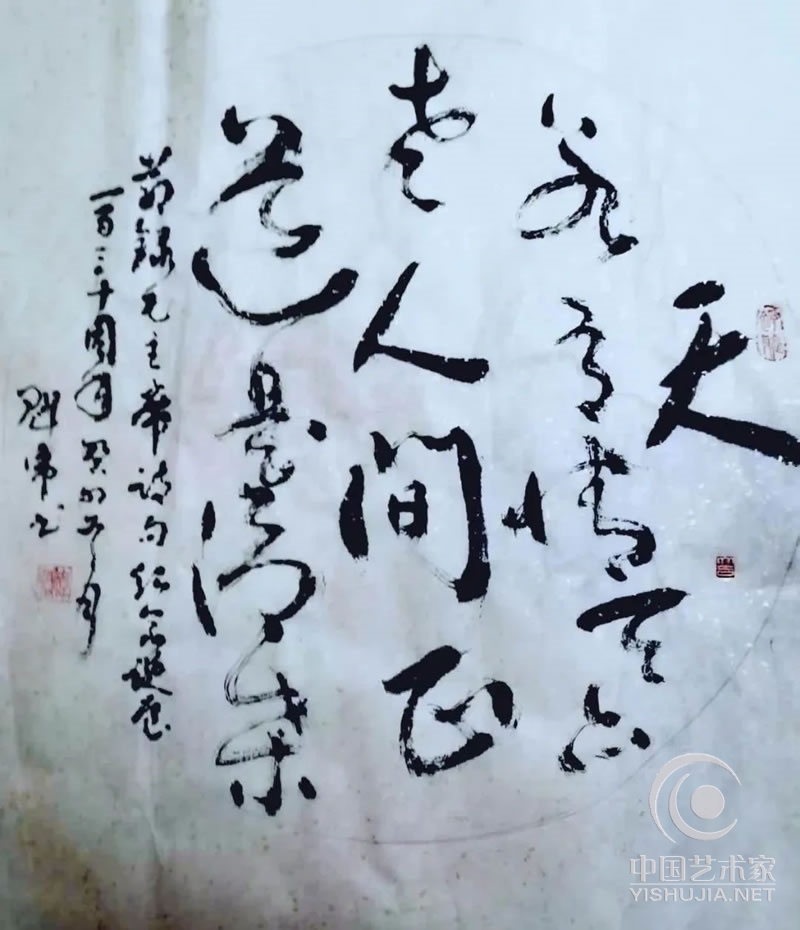 天
若有情天亦
老人间正
道是沧桑
节录毛主席诗句纪念诞辰
一百三十周年癸卯
书
中国艺术家
YISHUJIA.NET